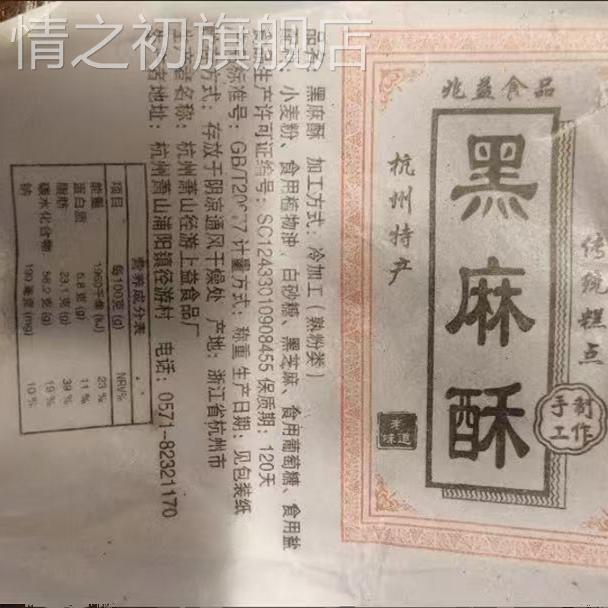 情之初旗舰店
兆益食品
杭州特产
黑麻酥
传统糕点
手制
工作
老
味道
品名：黑麻酥 加工方式：冷加工（熟粉类）
小麦粉、食用植物油、白砂糖、黑芝麻、食用葡萄糖、食用盐
食品生产许可证编号：SC12433010908455 保质期：120天
标准号：GB/T20 7 计量方式：称重 生产日期：见包装纸
方式：存放于阴凉通风干燥处 产地：浙江省杭州市
名称：杭州萧山径游上益食品厂
地址：杭州萧山浦阳镇径游村 电话：0571-82321170
营养成分表
项目 每100克(g) NRV%
能量 1960千焦(kJ) 23%
蛋白质 6.8克(g) 11%
脂肪 23.1克(g) 39%
碳水化合物 56.2克(g) 19%
钠 199毫克(mg) 10%